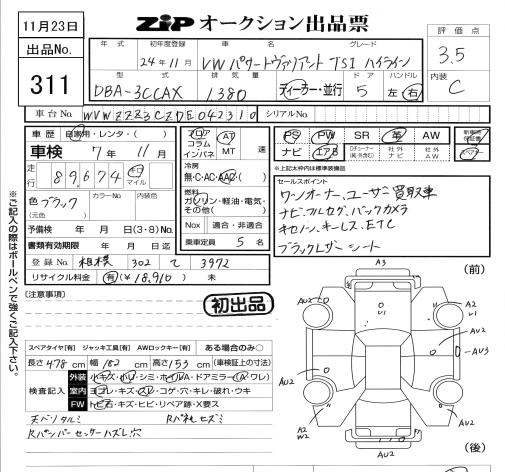 11月23日
ZIP オークション出品票
評価点
3.5
内装
C
出品No.
311
年式 初年度登録 車名 グレード
24年11月 VWパサートヴァリアント TSI ハイライン
型式 排気量 ドア ハンドル
DBA-3CCAX 1380 ディーラー・並行 5 左 右
車台No. WVWZZZ3CZDE042310 シリアルNo.
車歴 自家用・レンタ・( )
車検 7年 11月
走行 89,674 キロ マイル
色 ブラック カラーNo. 内装色
(元色)
予備検 年 月 日(3・8) No.
書類有効期限 年 月 日迄
登録No. 相模 302 て 3972
リサイクル料金 有(¥18,910) 未
フロア コラム インパネ
AT MT 速
冷房
無・C・AC・AAC・( )
燃料
ガソリン・軽油・電気・その他( )
Nox 適合・非適合
乗車定員 5 名
PS PW SR 革 AW
ナビ エアB
新車時保証書
*上記太枠内は標準装備品
セールスポイント
ワンオーナー、ユーザー買取車
ナビ、フルセグ、バックカメラ
キセノン、キーレス、ETC
ブラックレザーシート
※ご記入の際はボールペンで強くご記入下さい。
[注意事項]
初出品
スペアタイヤ[有] ジャッキ工具[有] AWロックキー[有] ある場合のみ○
長さ 478 cm 幅 182 cm 高さ 153 cm (車検証上の寸法)
検査記入
外装 小キズ・ホリ・シミ・ホイルA・ドアミラー(A・ワレ)
室内 ヨゴレ・キズ・スレ・コゲ・穴・キレ・破れ・ウキ
FW トビ石・キズ・ヒビ・リペア跡・X要ス
天ベリタルミ
Rバンパーセンサーハズレ穴
(前)
A3
A2
U
U1
AU2
A2
AU2
AU3
AU2
A2
W2
AU2
AU2
(後)